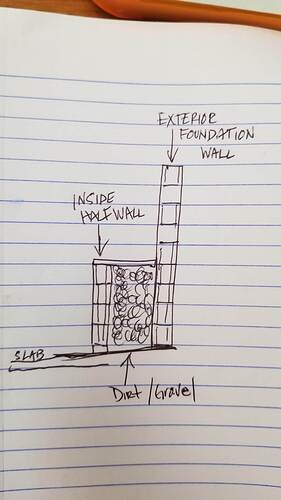 EXTERIOR
FOUNDATION
WALL
INSIDE
HALFWALL
SLAB
Dirt/Gravel